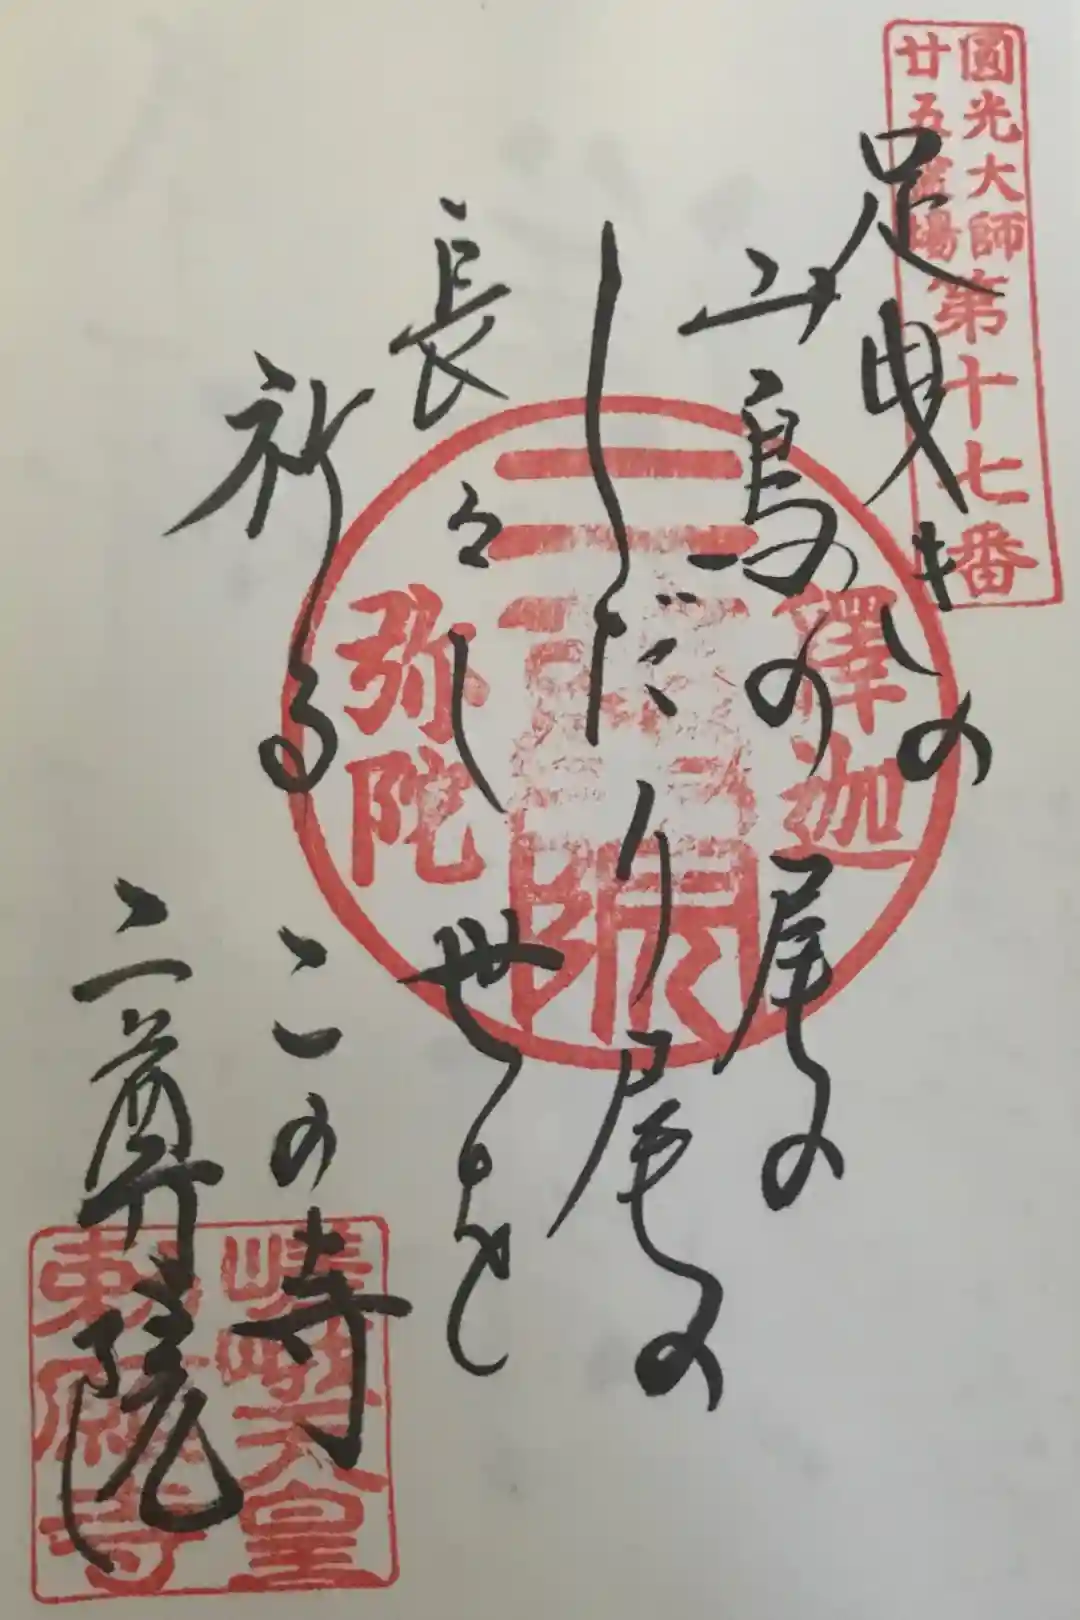 圓光大師
廿五霊場
第十七番
足曳きの
山鳥の尾の
しだり尾の
長々し世を
祈る
この寺
二尊院
釋迦
弥陀
嵯峨天皇
勅願寺